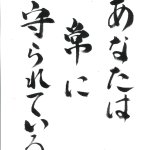 あなたは
常に
守られている